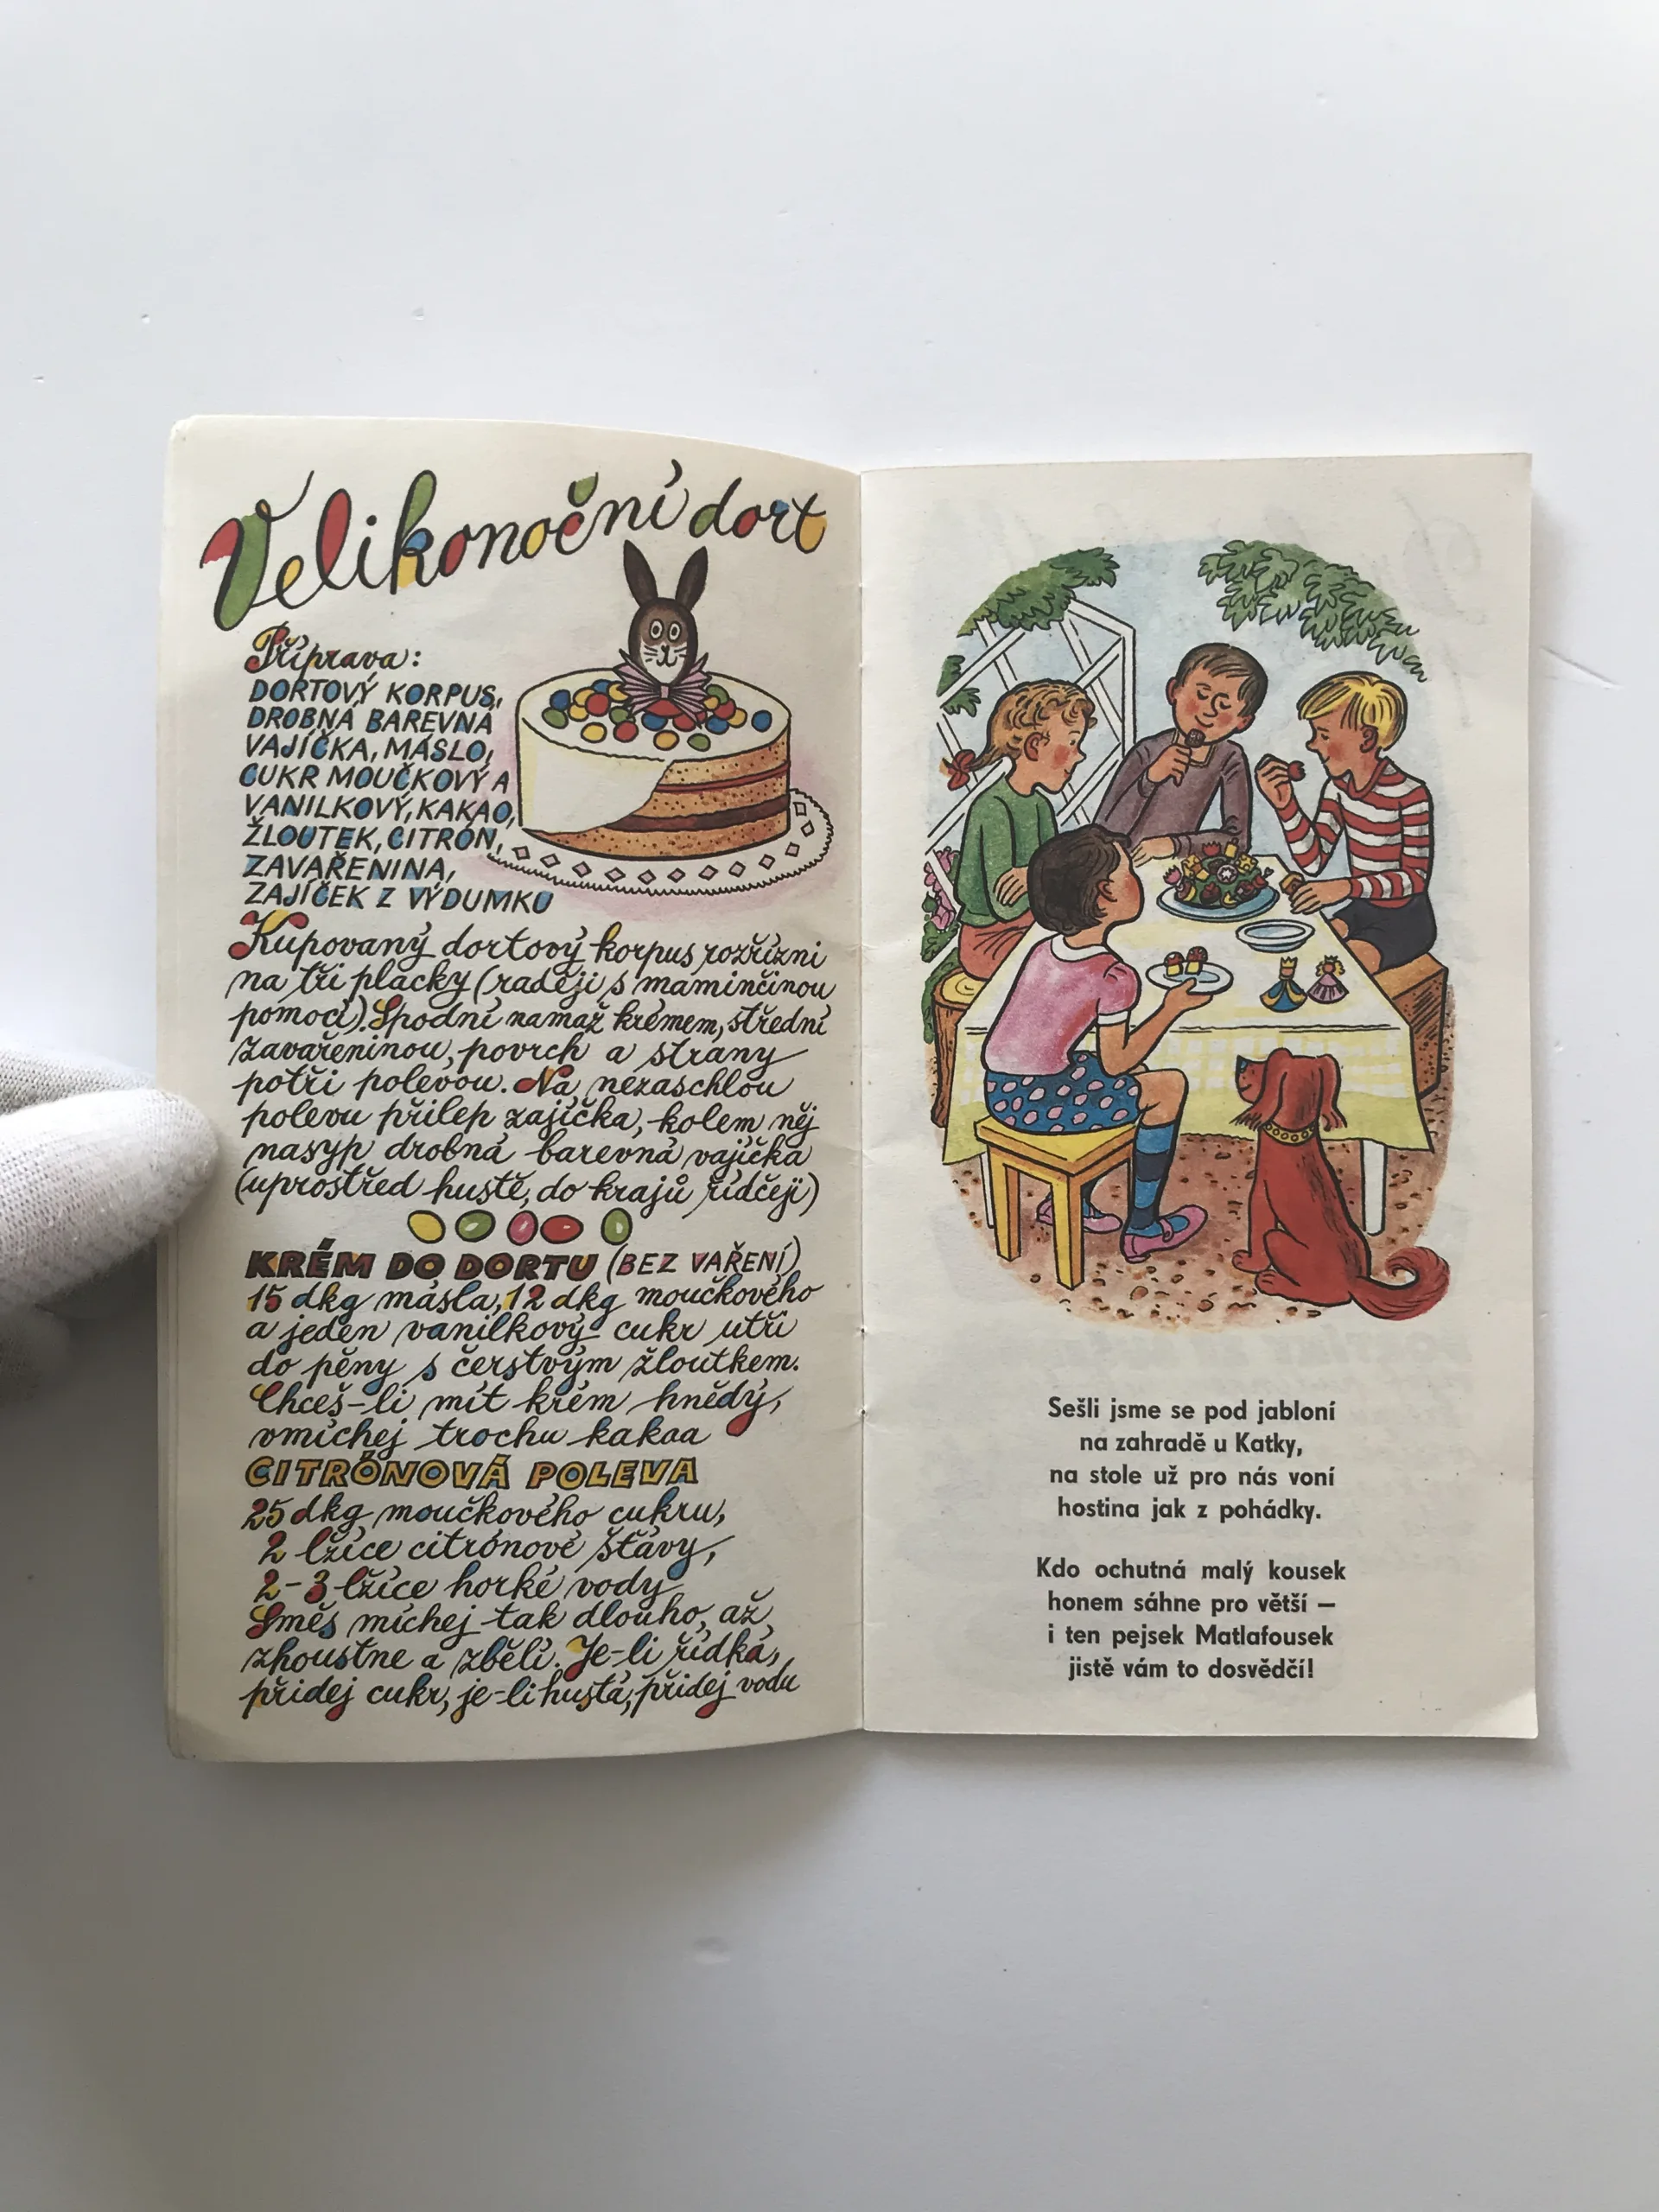 Velikonoční dort
Příprava:
DORTOVÝ KORPUS,
DROBNÁ BAREVNÁ
VAJÍČKA, MÁSLO,
CUKR MOUČKOVÝ A
VANILKOVÝ, KAKAO,
ŽLOUTEK, CITRÓN,
ZAVAŘENINA,
ZAJÍČEK Z VÝDUMKU
Kupovaný dortový korpus rozřízni
na tři placky (raději s maminčinou
pomocí). Spodní namaž krémem, střední
zavařeninou, povrch a strany
potři polevou. Na nezaschlou
polevu přilep zajíčka, kolem něj
nasyp drobná barevná vajíčka
(uprostřed hustě, do krajů řidčeji)
KRÉM DO DORTU (BEZ VAŘENÍ)
15 dkg másla, 12 dkg moučkového
a jeden vanilkový cukr utři
do pěny s čerstvým žloutkem.
Chceš-li mít krém hnědý,
vmíchej trochu kakaa
CITRÓNOVÁ POLEVA
25 dkg moučkového cukru,
2 lžíce citrónové šťávy,
2-3 lžíce horké vody
Směs míchej tak dlouho, až
zhoustne a zbělí. Je-li řídká,
přidej cukr, je-li hustá, přidej vodu
Sešli jsme se pod jabloní
na zahradě u Katky,
na stole už pro nás voní
hostina jak z pohádky.
Kdo ochutná malý kousek
honem sáhne pro větší —
i ten pejsek Matlafousek
jistě vám to dosvědčí!